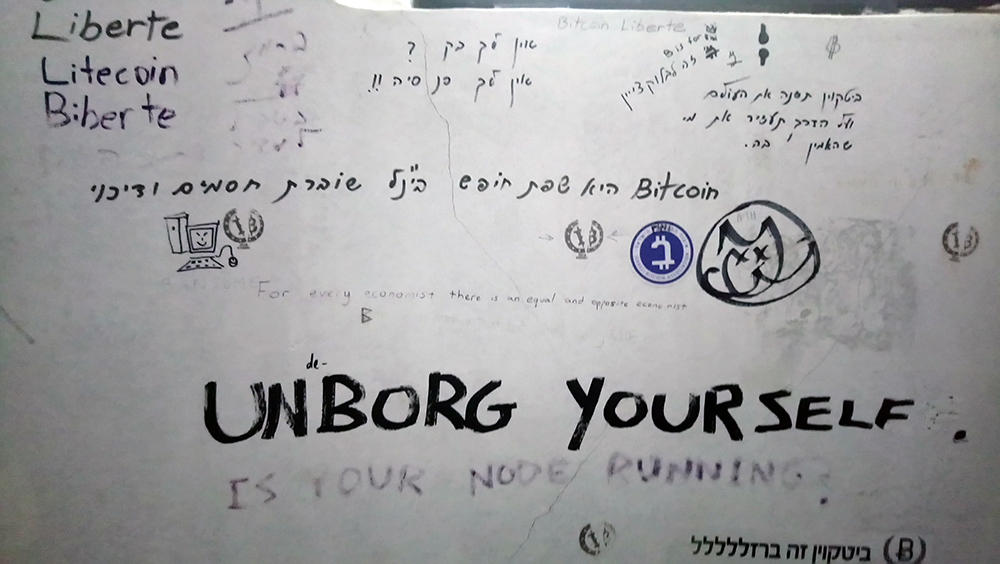 Liberte
Litecoin
Biberte
Bitcoin Liberte
אין לך בק ?
אין לך סיה !!
B is for
זה לבלוקציין
ביטקוין תשנה את העולם
ועל הדרך תעזור את מי
שהאמין בה.
Bitcoin היא שפת חופש בינ"ל שוברת חסמים ודיכוי
For every economist there is an equal and opposite economist
B
de-
UNBORG YOURSELF.
IS YOUR NODE RUNNING?
(B) ביטקוין זה ברזלללללל